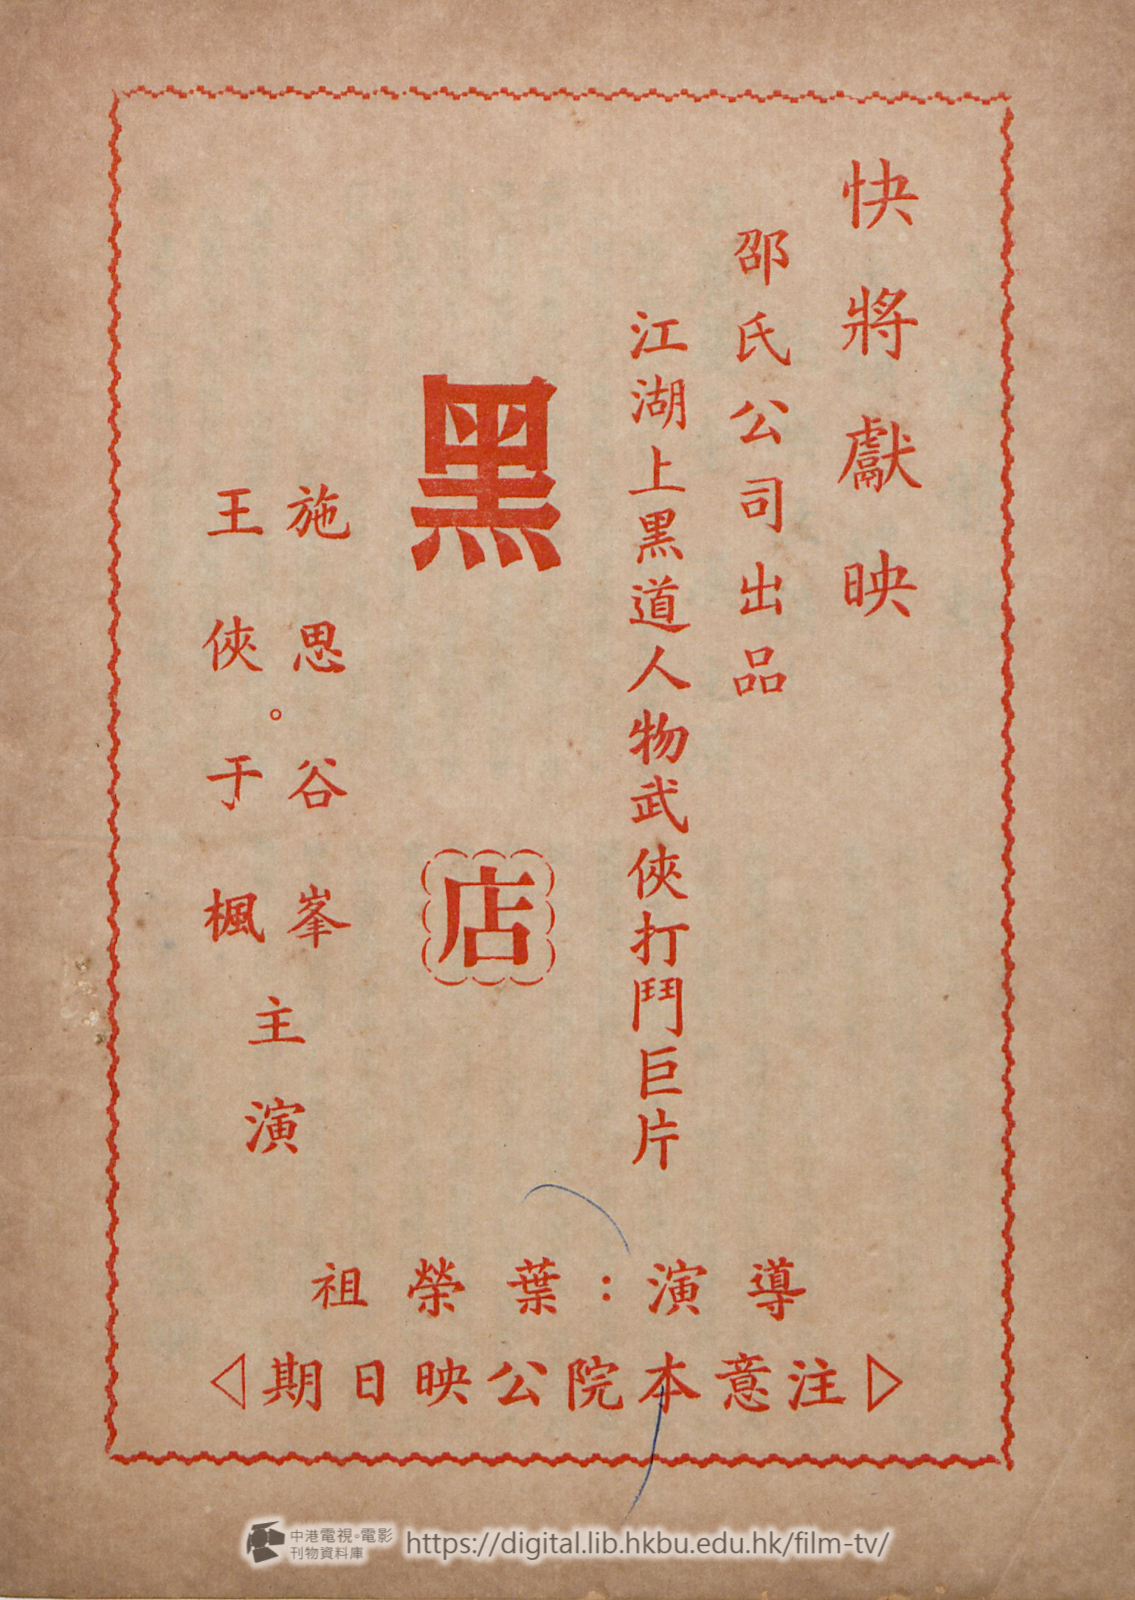 快將獻映
邵氏公司出品
江湖上黑道人物武俠打鬥巨片
黑店
施思谷峯
王俠。于楓
主演
導演：葉榮祖
▷注意本院公映日期◁
中港電視。電影
刊物資料庫
https://digital.lib.hkbu.edu.hk/film-tv/